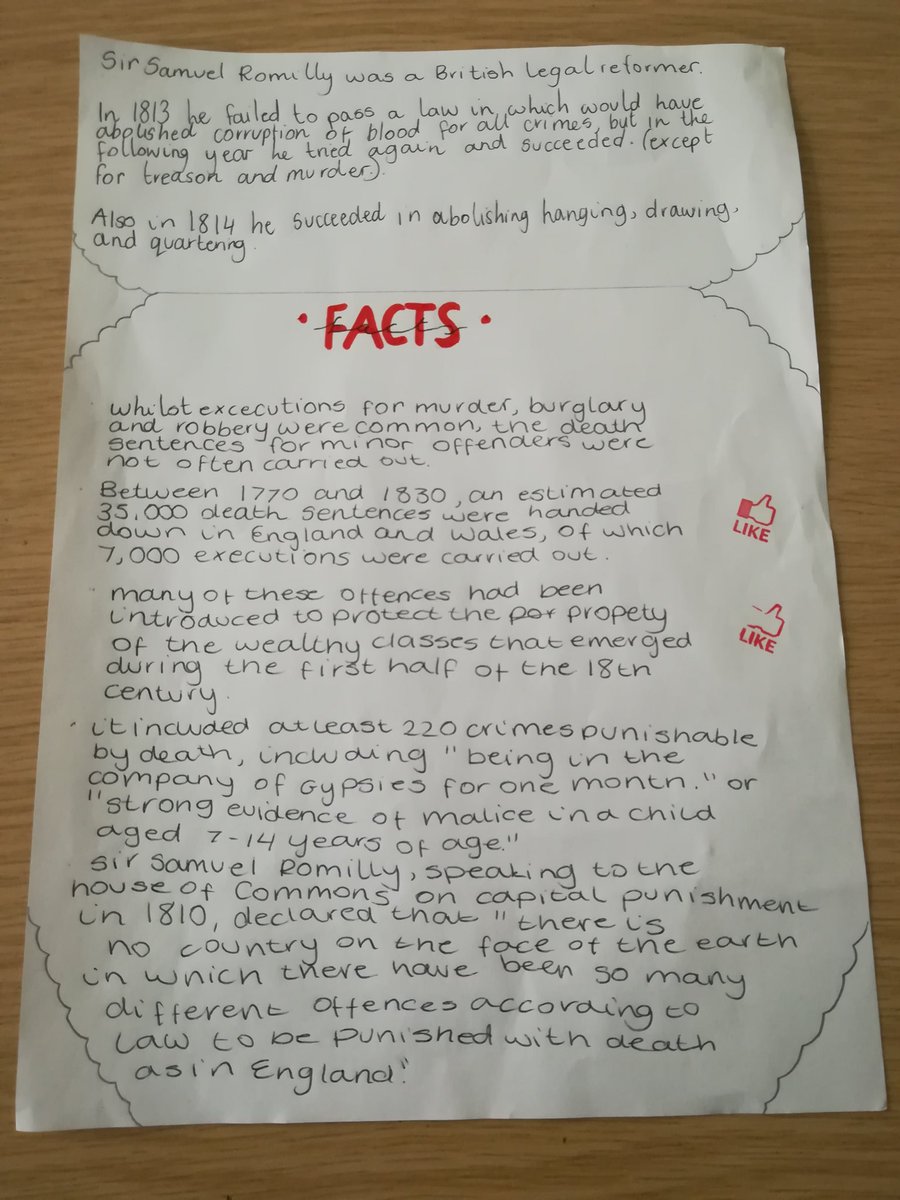 Sir Samuel Romilly was a British legal reformer.
In 1813 he failed to pass a law in which would have
abolished corruption of blood for all crimes, but in the
following year he tried again and succeeded. (except
for treason and murder.).
Also in 1814 he succeeded in abolishing hanging, drawing,
and quartering.
• FACTS •
whilst excecutions for murder, burglary
and robbery were common, the death
sentences for minor offenders were
not often carried out.
Between 1770 and 1830, an estimated
35,000 death sentences were handed
down in England and Wales, of which
7,000 executions were carried out.
LIKE
many of these offences had been
introduced to protect the por propety
of the wealthy classes that emerged
during the first half of the 18th
century.
LIKE
• it included atleast 220 crimes punishable
by death, including "being in the
company of Gypsies for one month." or
"strong evidence of malice in a child
aged 7-14 years of age."
Sir Samuel Romilly, speaking to the
house of Commons on capital punishment
in 1810, declared that "there is
no country on the face of the earth
in which there have been so many
different offences according to
law to be punished with death
as in England."